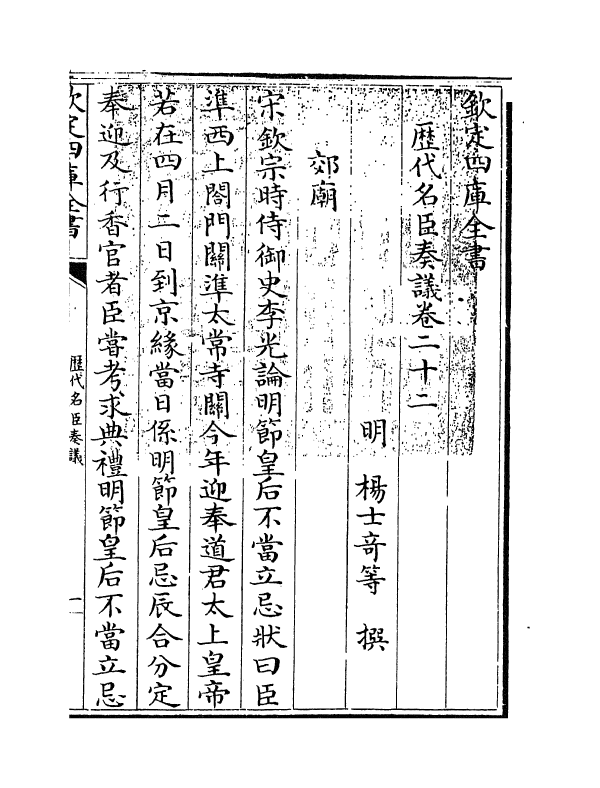 欽定四庫全書
歴代名臣奏議卷二十二
明　楊士竒等　撰
郊廟
宋欽宗時侍御史李光論明節皇后不當立忌狀曰臣
準西上閤門關準太常寺關今年迎奉道君太上皇帝
若在四月二日到京緣當日係明節皇后忌辰合分定
奉迎及行香官者臣嘗考求典禮明節皇后不當立忌
欽定四庫全書
歴代名臣奏議
一